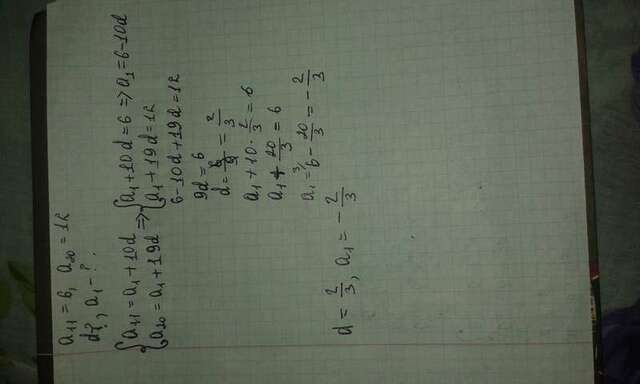 a₁₁ = 6, a₂₀ = 12
d?, a₁ - ?
{a₁₁ = a₁ + 10d => {a₁ + 10d = 6 => a₁ = 6 - 10d
{a₂₀ = a₁ + 19d {a₁ + 19d = 12
6 - 10d + 19d = 12
9d = 6
d = 6/9 = 2/3
a₁ + 10 · 2/3 = 6
a₁ + 20/3 = 6
a₁ = ³⁾6 - 20/3 = - 2/3
d = 2/3, a₁ = - 2/3